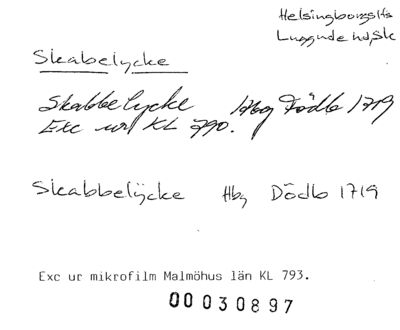 Helsingborgs lfs
Luggude hd, Sk
Skabelycke
Skabbelycke Hbg Dödb 1719
Exc ur KL 790.
Skabbelÿcke Hbg Dödb 1719
Exc ur mikrofilm Malmöhus län KL 793.
00030897